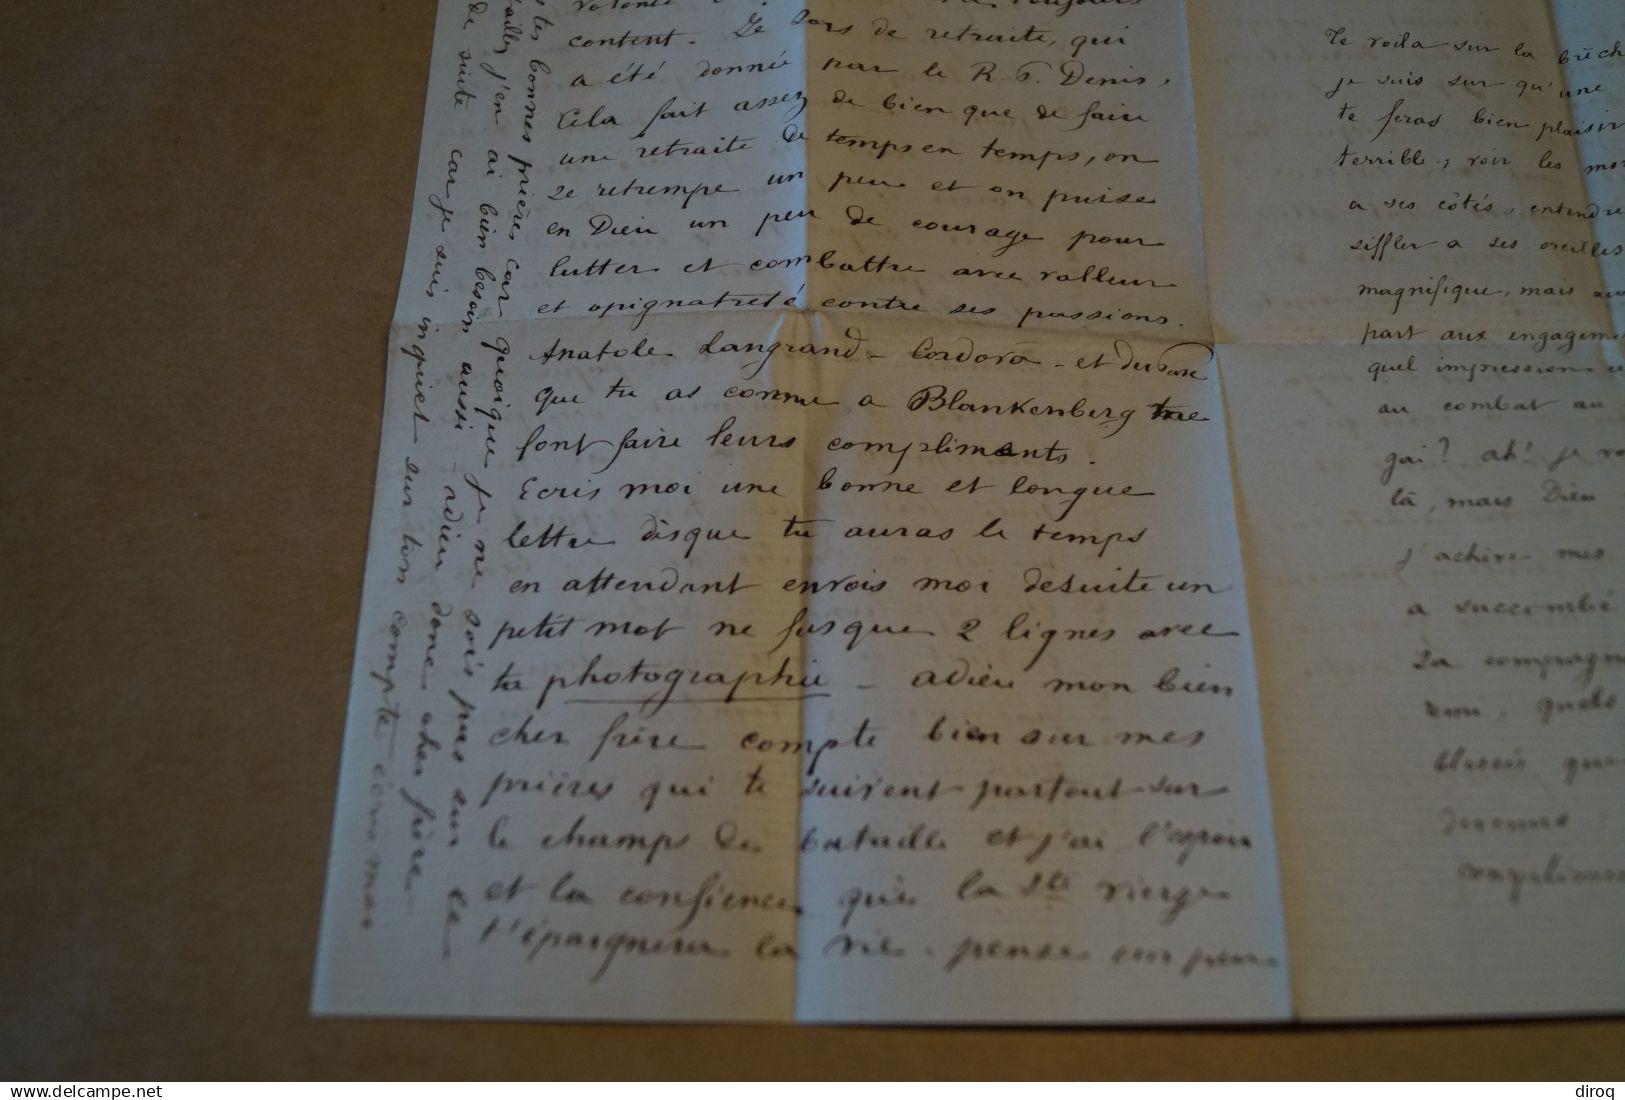 volonté
content. Je sors de retraite, qui
a été donnée par le R. P. Denis,
Cela fait assez de bien que de faire
une retraite de temps en temps, on
se retrempe un peu et on puise
en Dieu un peu de courage pour
lutter et combattre avec valleur
et opignatreté contre ses passions.
Anatole Langrand - Cordova - et
que tu as connu a Blankenberg
font faire leurs compliments.
Ecris moi une bonne et longue
lettre disque tu auras le temps
en attendant envois moi desuite un
petit mot ne fusque 2 lignes avec
ta photographie - adieu mon bien
cher frère compte bien sur mes
prières qui te suivent partout sur
le champs de bataille et j'ai l'espoir
et la confience que la Ste Vierge
t'épargnera la vie. pense un peu
tes bonnes prières car quoique je ne sois pas sur le
j'en ai bien besoin aussi - adieu donc cher frère -
de suite car je suis inquiet sur ton compte écris moi
Te voila sur la brêch
je suis sur qu'une
te feras bien plaisir
terrible, voir les
a ses côtés, entendre
siffler a ses oreilles
magnifique, mais
part aux engagem
quel impression
au combat au
gai? ah! je
là, mais Dieu
J'achève mes
a succombé
sa compagn
quels
blessés que